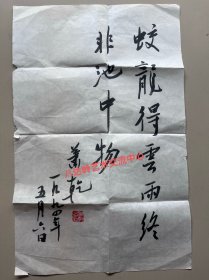 蛟龍得雲雨終
非池中物
蕭乾
一九九四年
五月六日